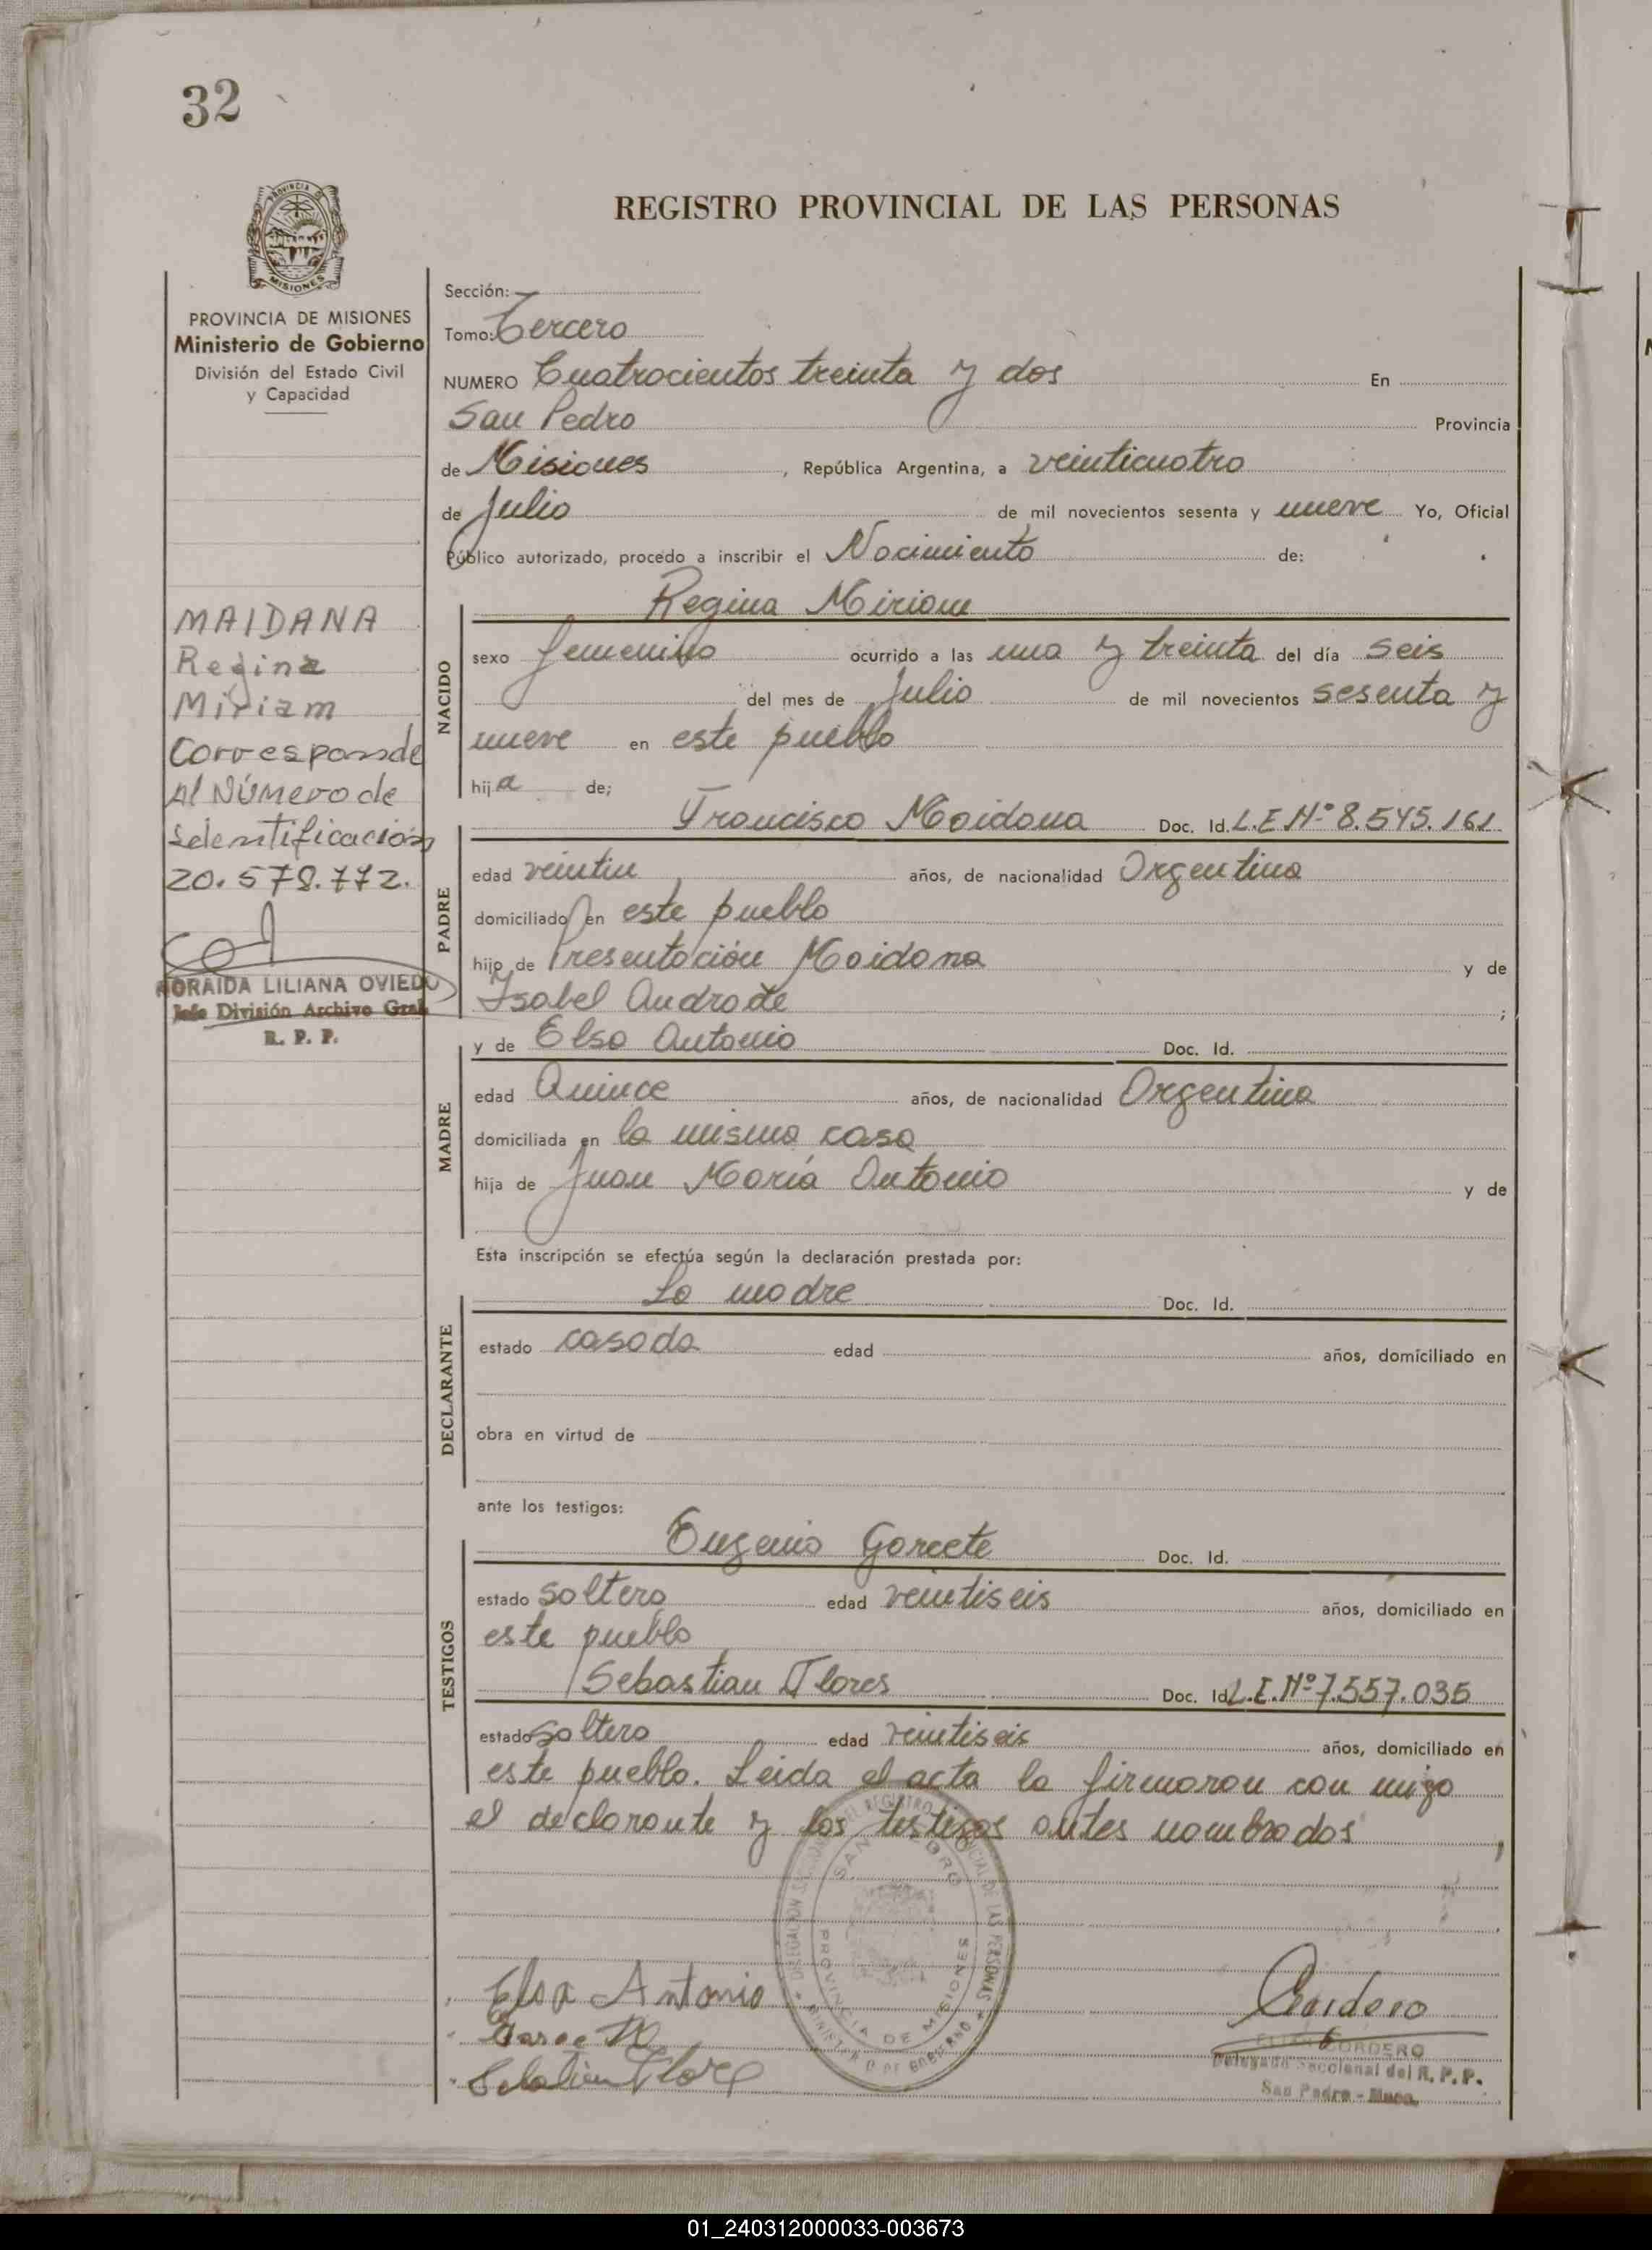 32
PROVINCIA DE MISIONES
Ministerio de Gobierno
División del Estado Civil
y Capacidad
MAIDANA
Regina
Miriam
Corresponde
Al Número de
identificación
20.578.772.
ZORAIDA LILIANA OVIEDO
Jefe División Archivo Gral.
R. P. P.
REGISTRO PROVINCIAL DE LAS PERSONAS
Sección:
Tomo: Tercero
NUMERO Cuatrocientos treinta y dos En
San Pedro Provincia
de Misiones, República Argentina, a veinticuatro
de Julio de mil novecientos sesenta y nueve Yo, Oficial
Público autorizado, procedo a inscribir el Nacimiento de:
Regina Miriam
NACIDO
sexo femenino ocurrido a las una y treinta del día seis
del mes de Julio de mil novecientos sesenta y
nueve en este pueblo
hija de;
Francisco Maidana Doc. Id. L.E Nº 8.545.161
PADRE
edad veintiu años, de nacionalidad Argentina
domiciliado en este pueblo
hijo de Presentación Maidana y de
Isabel Andrade ;
y de Elsa Antonio Doc. Id.
MADRE
edad Quince años, de nacionalidad Argentina
domiciliada en la misma casa
hija de Juan María Antonio y de
Esta inscripción se efectúa según la declaración prestada por:
La madre Doc. Id.
DECLARANTE
estado casada edad años, domiciliado en
obra en virtud de
ante los testigos:
Eugenio Garcete Doc. Id.
TESTIGOS
estado soltero edad veintiseis años, domiciliado en
este pueblo
Sebastian Flores Doc. Id. L.E. Nº 7.557.035
estado soltero edad veintiseis años, domiciliado en
este pueblo. Leida el acta la firmaron con migo
el declarante y los testigos antes nombrados
SAN PEDRO
PROVINCIA DE MISIONES
Elsa Antonio
Cordero
CORDERO
Delegado Seccional del R. P. P.
San Pedro - Mnes.
01_240312000033-003673